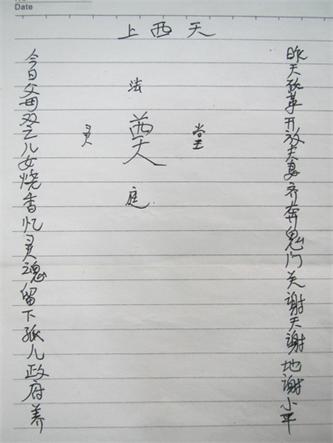 Date
上西天
昨天改革开放夫妻齐奔鬼门关谢天谢地谢小平
法
灵 奠 堂
庭
今日父母双亡儿女烧香忆灵魂留下孤儿政府养